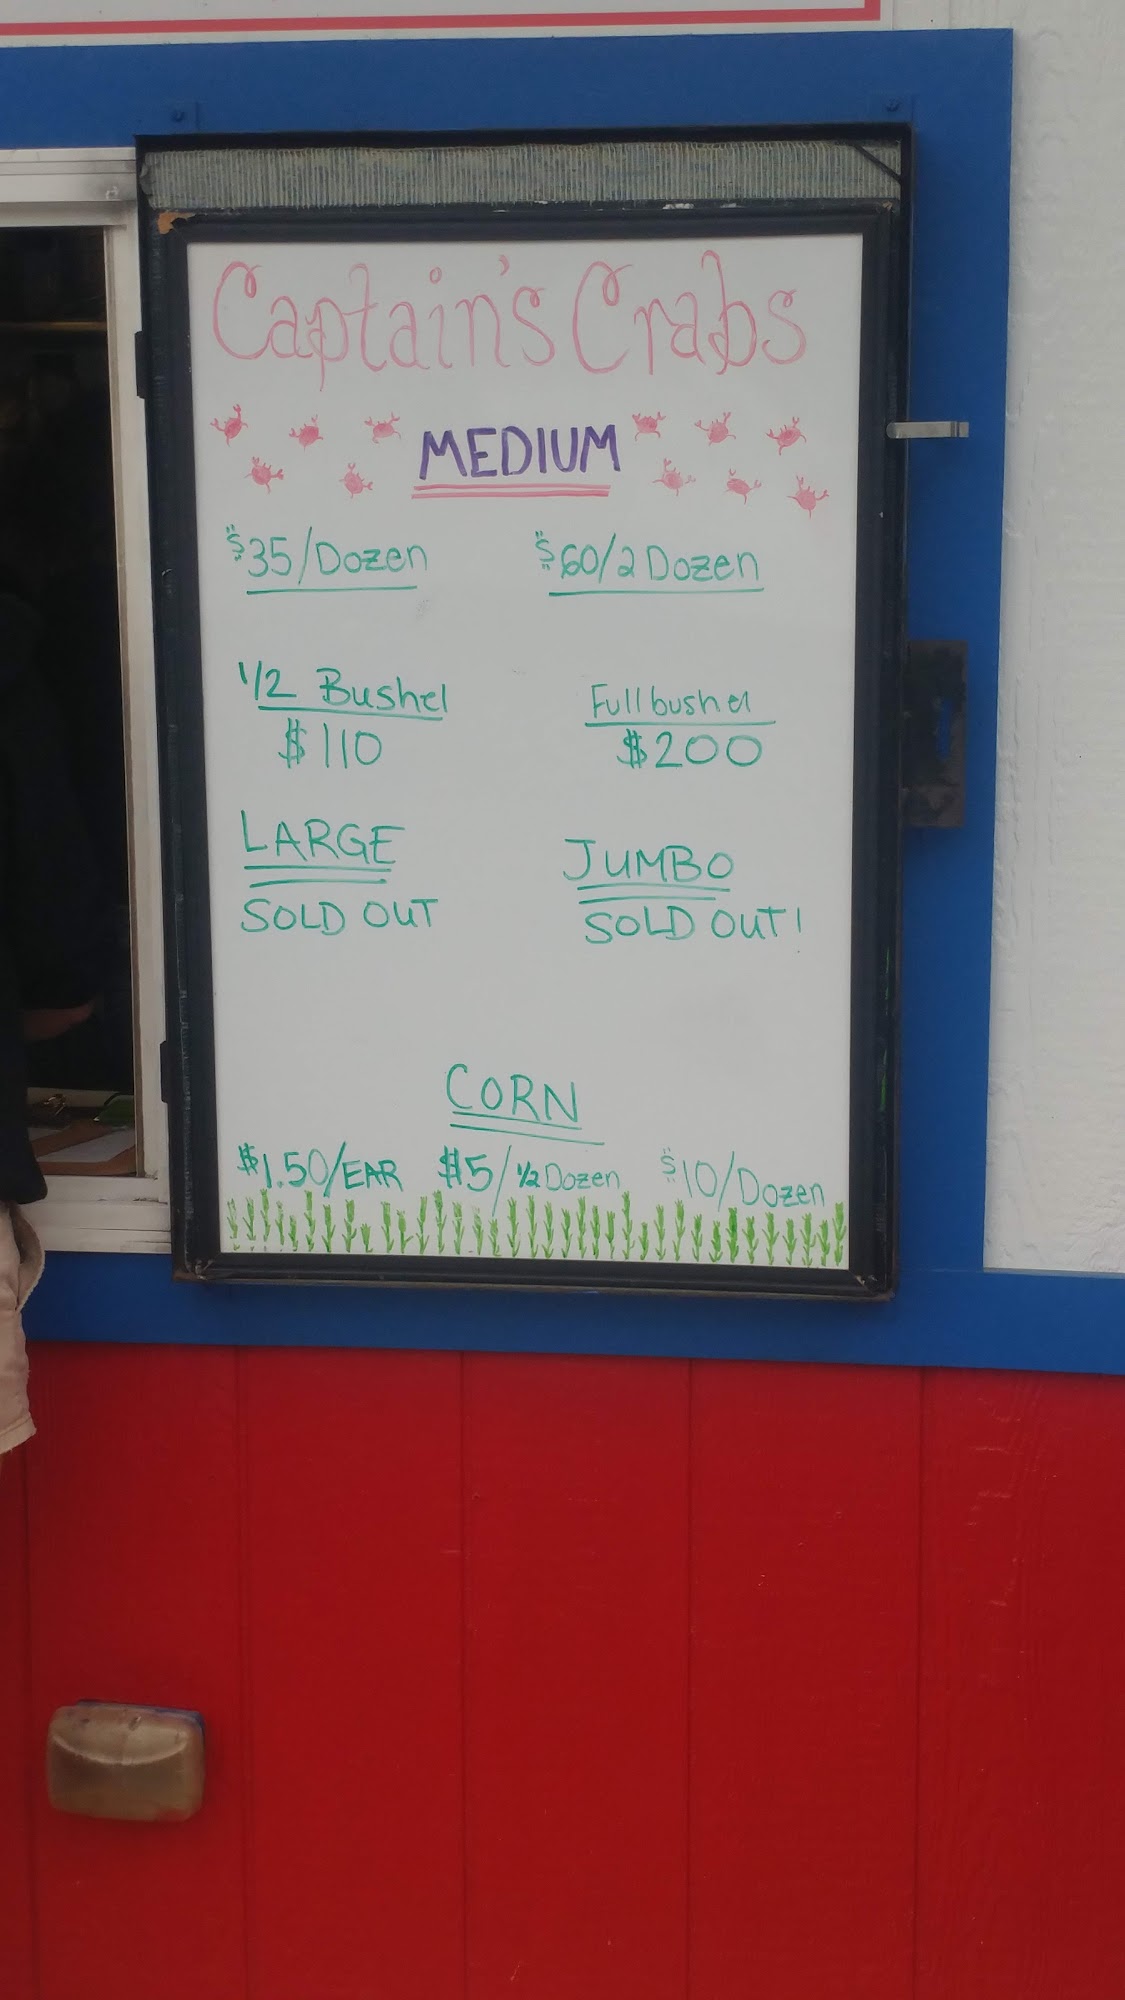 Captain's Crabs
MEDIUM
$35/Dozen $60/2 Dozen
1/2 Bushel Full bushel
$110 $200
LARGE JUMBO
SOLD OUT SOLD OUT!
CORN
$1.50/EAR $5/1/2 Dozen $10/Dozen